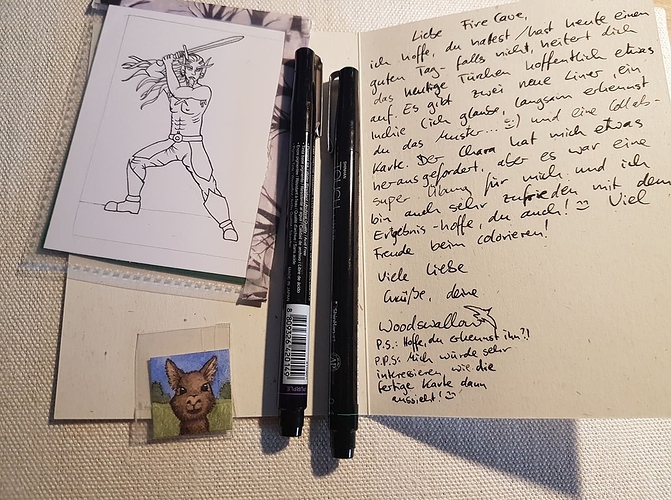 Liebe Fire Cave,
ich hoffe, du hattest/hast heute einen
guten Tag - falls nicht, heitert dich
das heutige Türchen hoffentlich etwas
auf. Es gibt zwei neue Liner, ein
Inchie (ich glaube, langsam erkennst
du das Muster... :)) und eine Collab-
Karte. Der Chara hat mich etwas
herausgefordert, aber es war eine
super Übung für mich und ich
bin auch sehr zufrieden mit dem
Ergebnis - hoffe, du auch! :) Viel
Freude beim colorieren!
Viele liebe
Grüße, deine
Woodswallow
P.S.: Hoffe, du erkennst ihn?!
P.P.S.: Mich würde sehr
interessieren, wie die
fertige Karte dann
aussieht! :)
TOUCH
MADE IN JAPAN